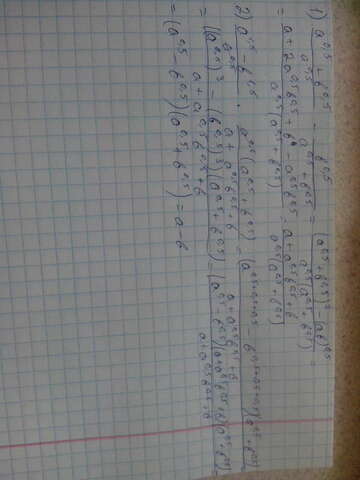 1) (a^0,5 + b^0,5)/a^0,5 - b^0,5/(a^0,5 + b^0,5) = ((a^0,5 + b^0,5)² - (ab)^0,5)/(a^0,5(a^0,5 + b^0,5)) =
= (a + 2a^0,5 b^0,5 + b - a^0,5 b^0,5)/(a^0,5(a^0,5 + b^0,5)) = (a + a^0,5 b^0,5 + b)/(a^0,5(a^0,5 + b^0,5))
2) a^0,5 (a^0,5 + b^0,5)/(a + a^0,5 b^0,5 + b) =
= ((a^0,5)³ - (b^0,5)³)(a^0,5 + b^0,5)/(a + a^0,5 b^0,5 + b) = (a^0,5 - b^0,5)(a + a^0,5 b^0,5 + b)(a^0,5 + b^0,5)/(a + a^0,5 b^0,5 + b) =
= (a^0,5 - b^0,5)(a^0,5 + b^0,5) = a - b